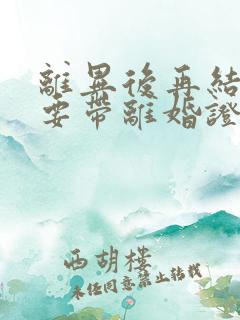 離異後再結
要帶離婚證
西胡樓
未任同意禁止转载